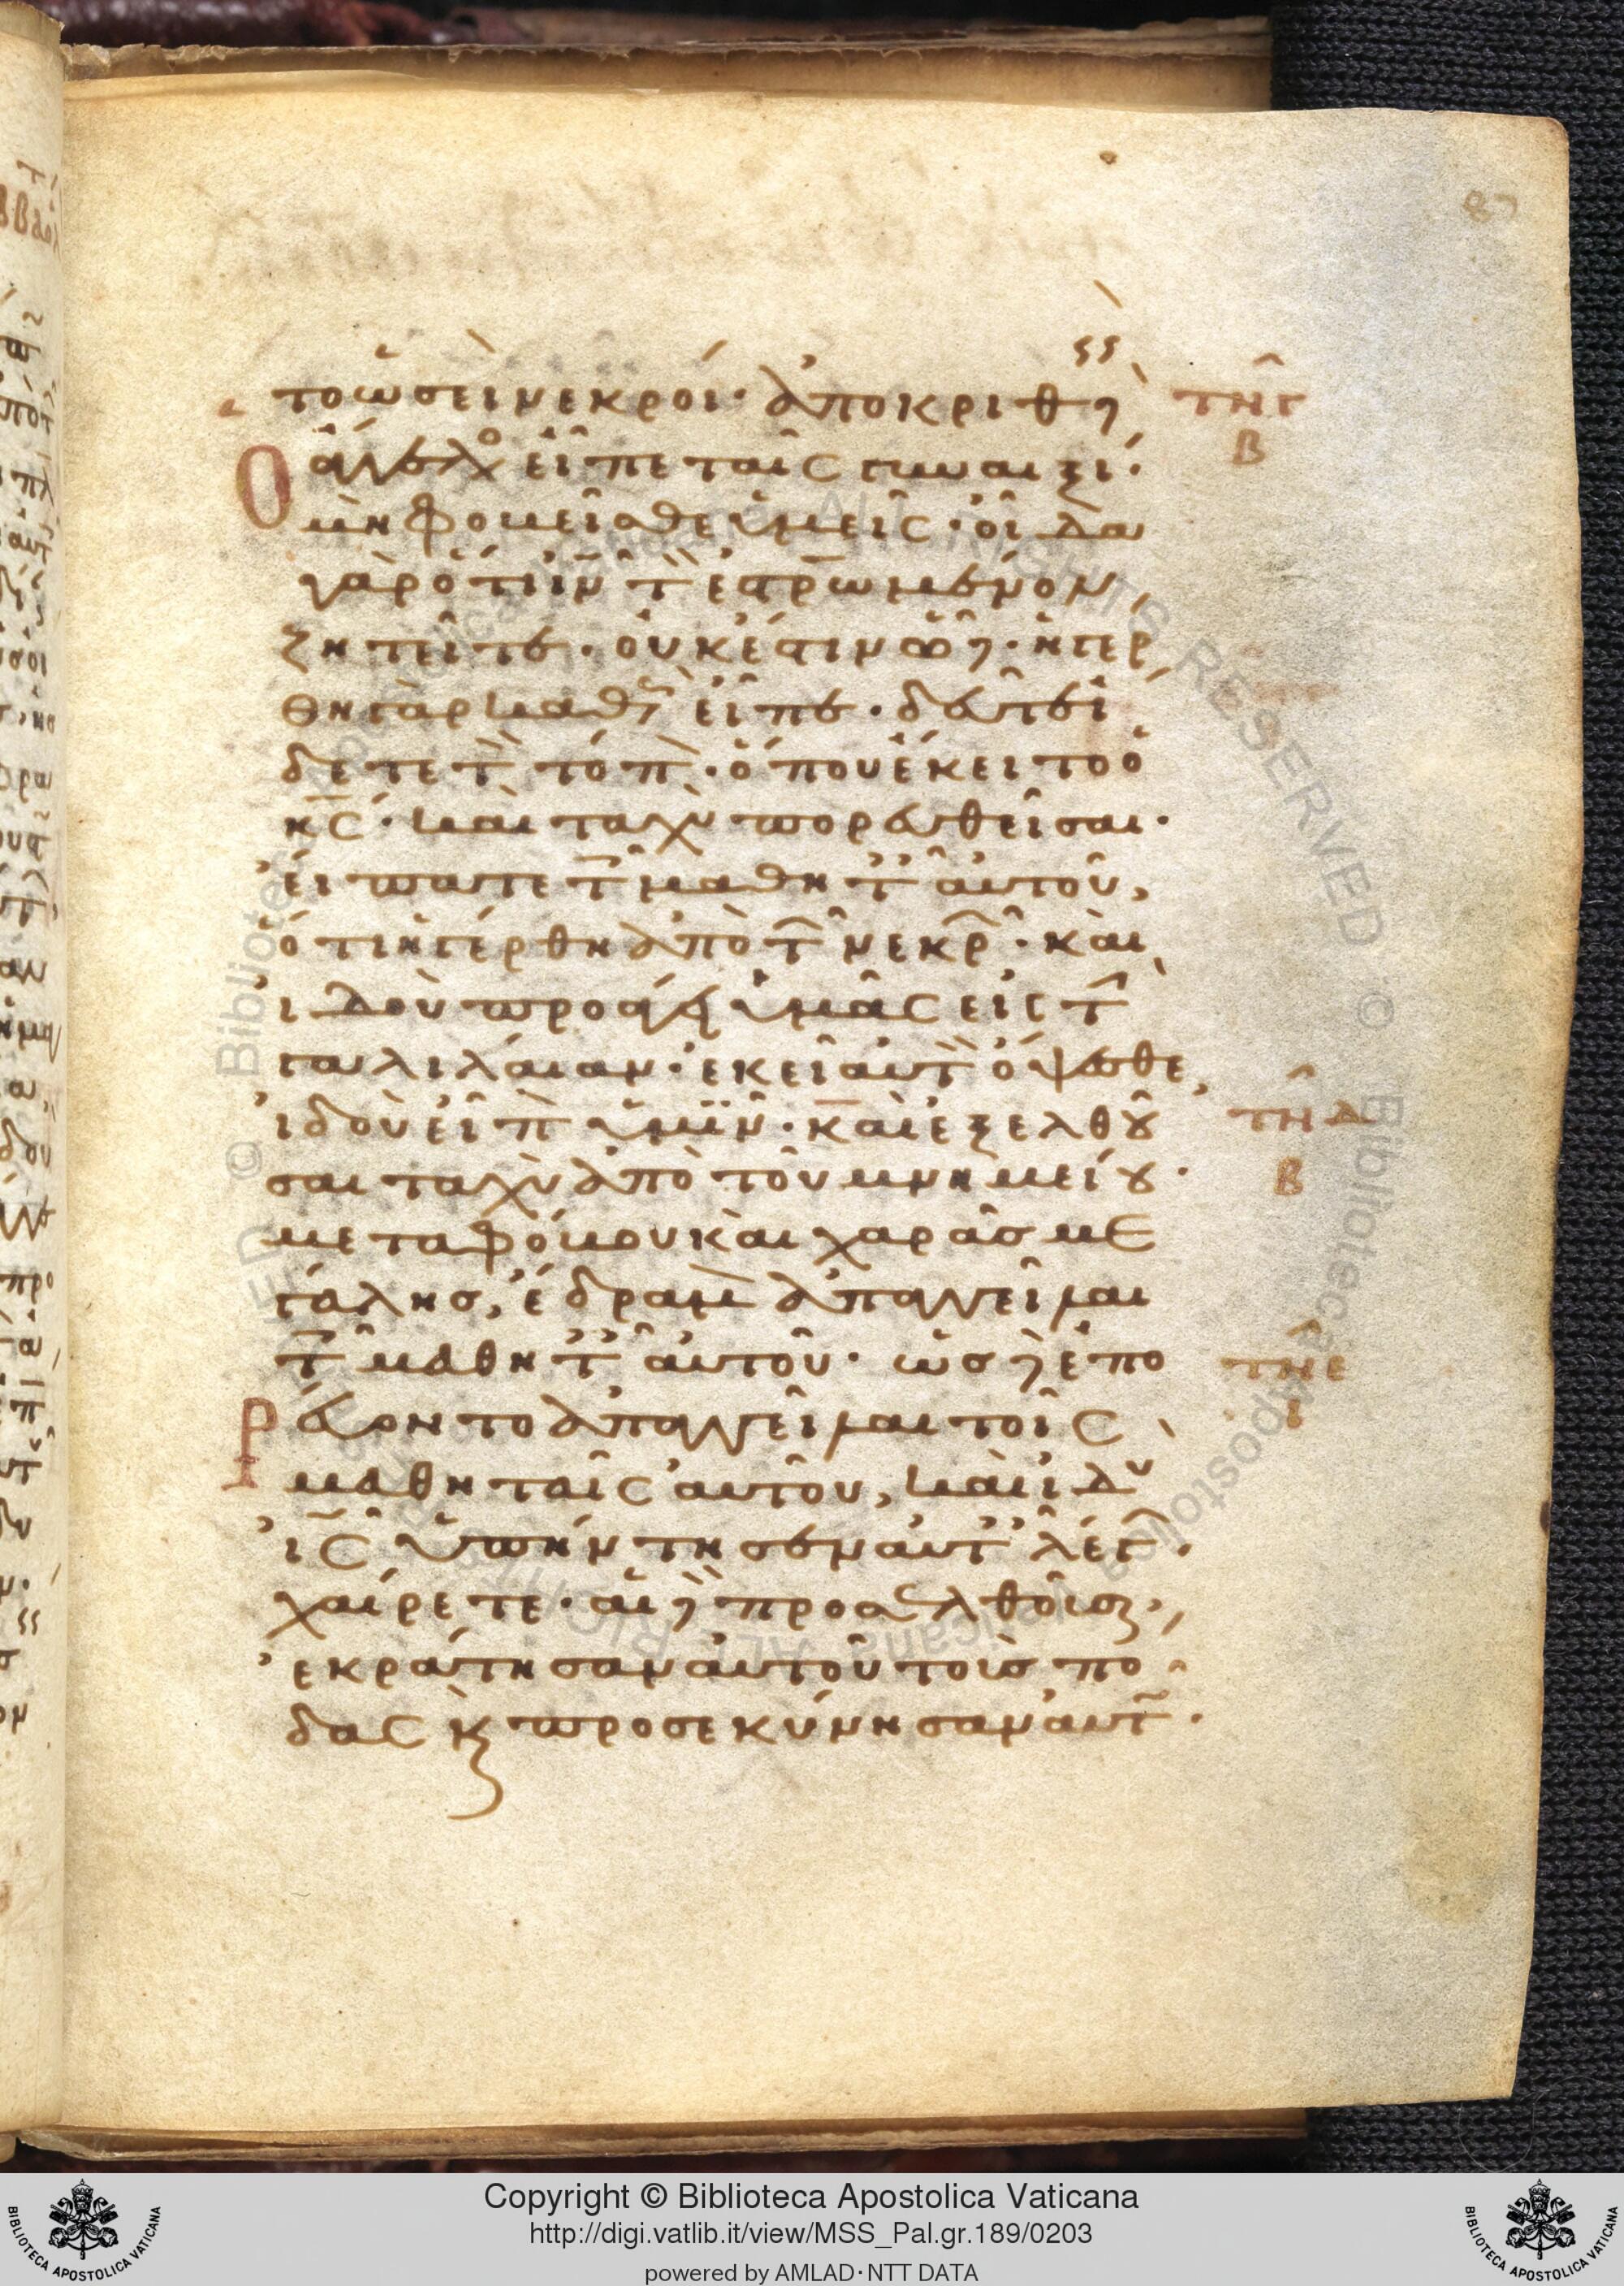 87
το ὡσεὶ νεκροί· ἀποκριθ(εὶς) δὲ τνγ
Ὁ ἄγγελο εἶπε ταῖς γυναιξί· β
μὴ φοβεῖσθε ὑμεῖς· οἶδα
γὰρ ὅτι ιν τ ἐστρωμένον,
ζητεῖτε· οὐκ ἔστιν ὧδε· ἠγέρ
θη γὰρ καθ εἶπε· δεῦτε ἴ
δετε τ τόπ· ὅπου ἔκειτο ὁ
κς· καὶ ταχὺ πορευθεῖσαι·
εἴπατε τ μαθητ αὐτοῦ,
ὅτι ἠγέρθη ἀπὸ τ νεκρ· καὶ
ἰδοὺ προάγ ὑμᾶς εἰς τ
γαλιλαίαν· ἐκεῖ αὐτ ὄψεσθε,
ἰδοὺ εἶπ ὑμῖν· καὶ ἐξελθοῦ τνδ
σαι ταχὺ ἀπὸ τοῦ μνημείου· β
μετὰ φόβου καὶ χαρᾶσ με
γάλησ, ἔδραμ ἀπαγγεῖλαι
τ μαθητ αὐτοῦ· ὡσ δὲ ἐπο τνε
ρεύοντο ἀπαγγεῖλαι τοῖς ι
μαθηταῖς αὐτοῦ, καὶ ἰδου
ις ὑπήντησεν αὐτ λέγ·
χαίρετε· αἱ δὲ προσελθοῦσαι,
ἐκράτησαν αὐτοῦ τοὺσ πό
δας κ προσεκύνησαν αὐτ·
Copyright © Biblioteca Apostolica Vaticana
http://digi.vatlib.it/view/MSS_Pal.gr.189/0203
powered by AMLAD·NTT DATA
BIBLIOTECA APOSTOLICA VATICANA
BIBLIOTECA APOSTOLICA VATICANA